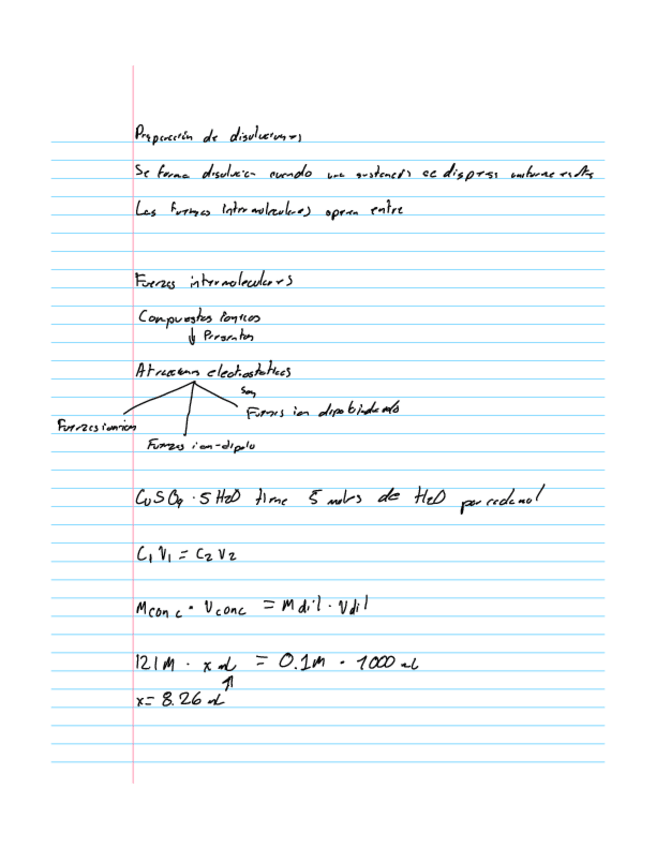 Preparación de disoluciones
Se forma disolución cuando una sustancia se dispersa uniformemente
Las fuerzas intermoleculares operan entre
Fuerzas intermoleculares
Compuestos ionicos
↓ Presentan
Atracciones electrostaticas
Son
Fuerzas ion dipolo inducido
Fuerzas ionicas
Fuerzas ion-dipolo
CuSO4 · 5 H2O tiene 5 moles de H2O por cada mol
C1 V1 = C2 V2
Mconc · Vconc = Mdil · Vdil
121M · x mL = 0.1M · 1000 mL
x = 8.26 mL